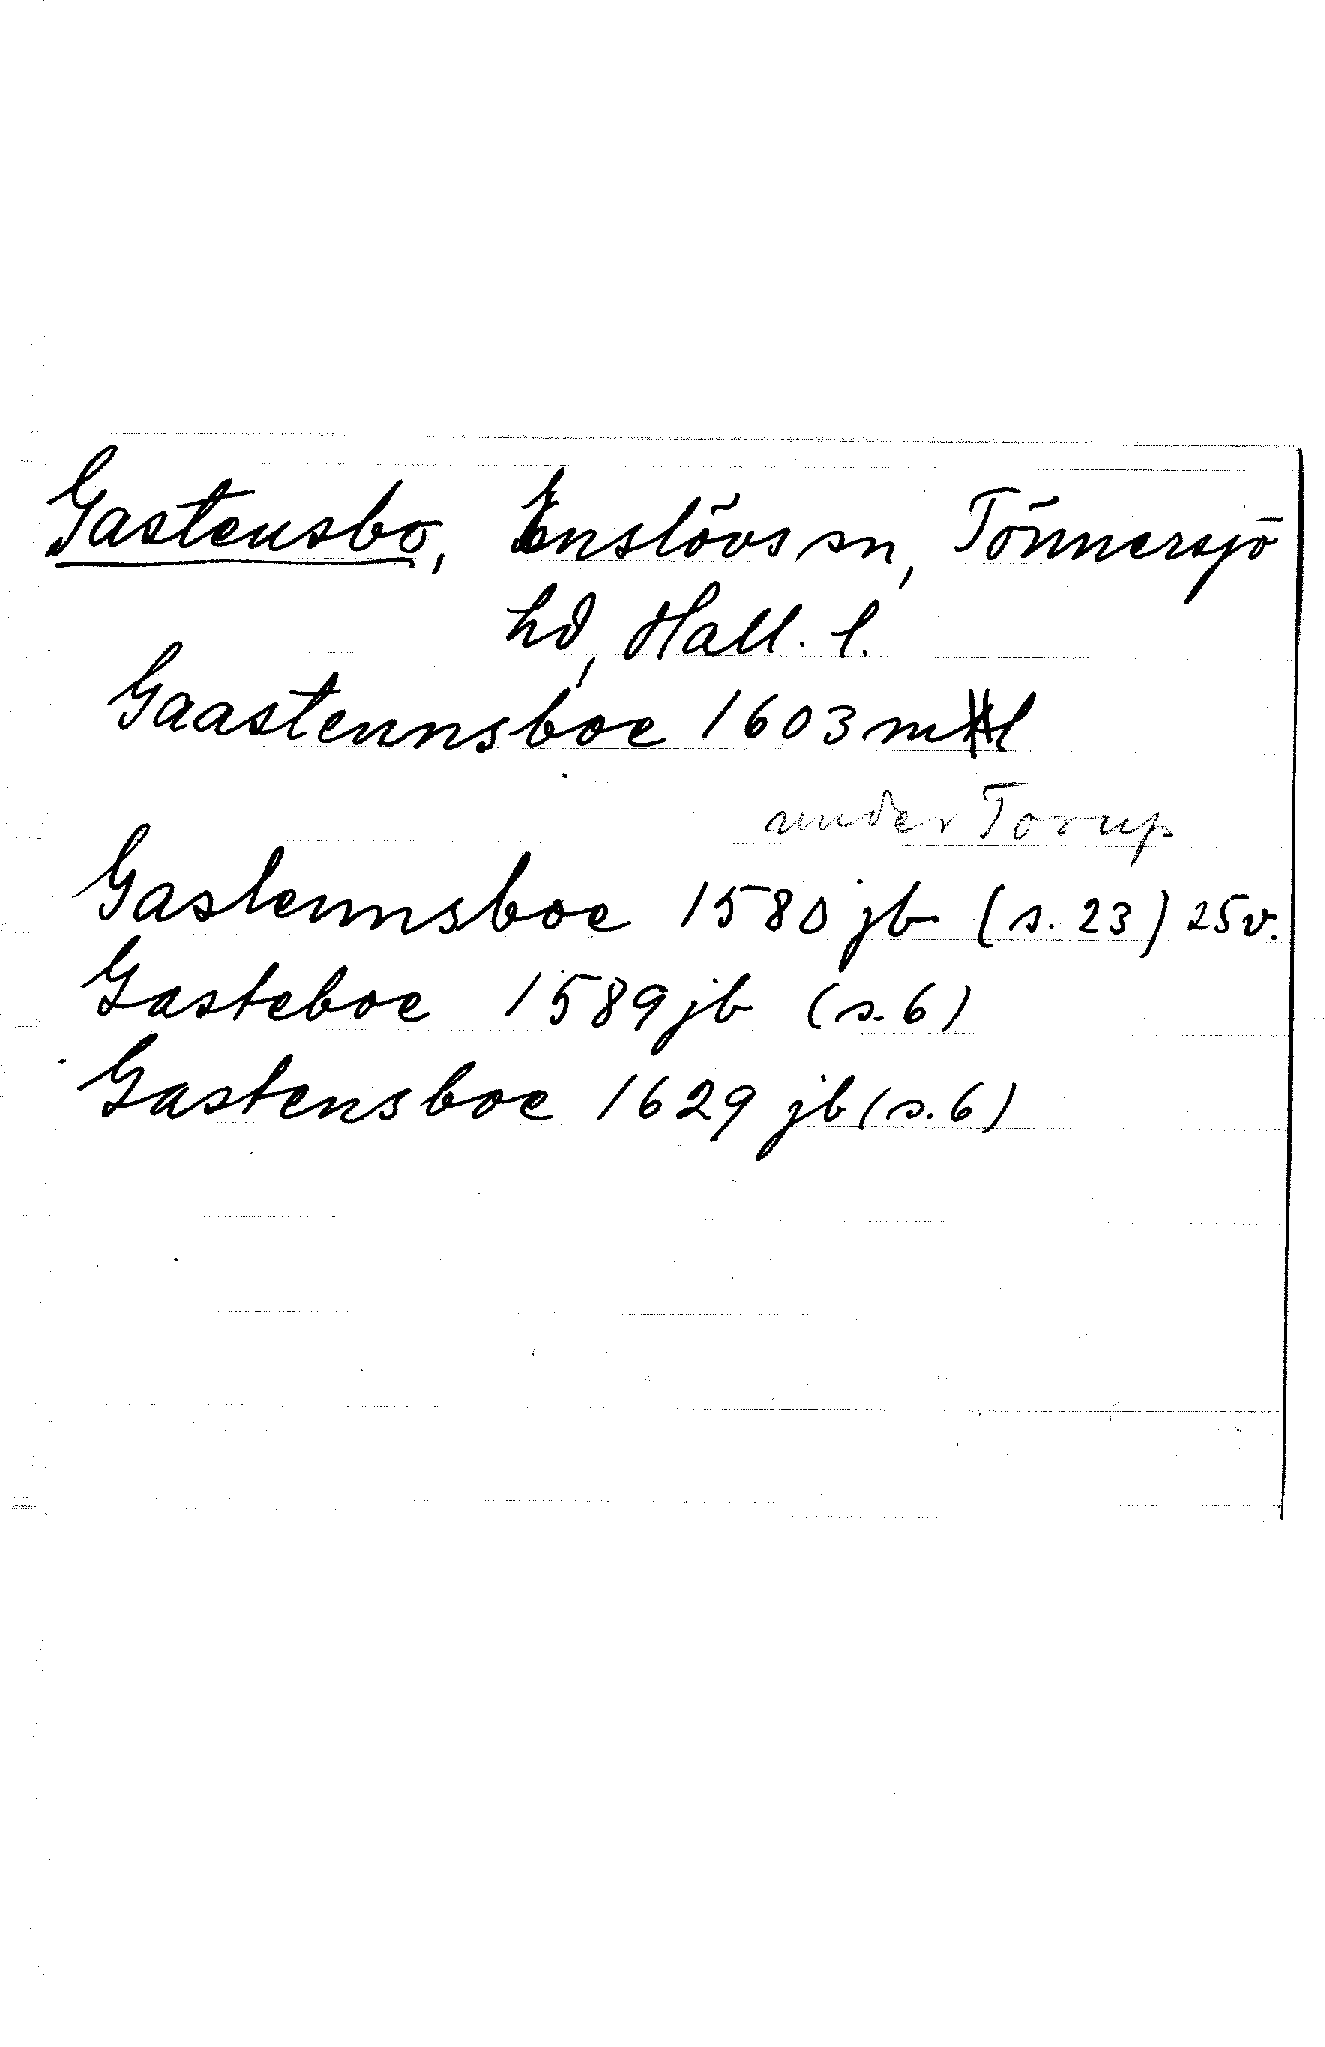 Gastensbo, Enslövs sn, Tönnersjö
hd, Hall. l.
Gaastennsboe 1603 ml
under Torup
Gastennsboe 1580 jb (s. 23) 25v.
Gasteboe 1589 jb (s. 6)
Gastensboe 1629 jb (s. 6)